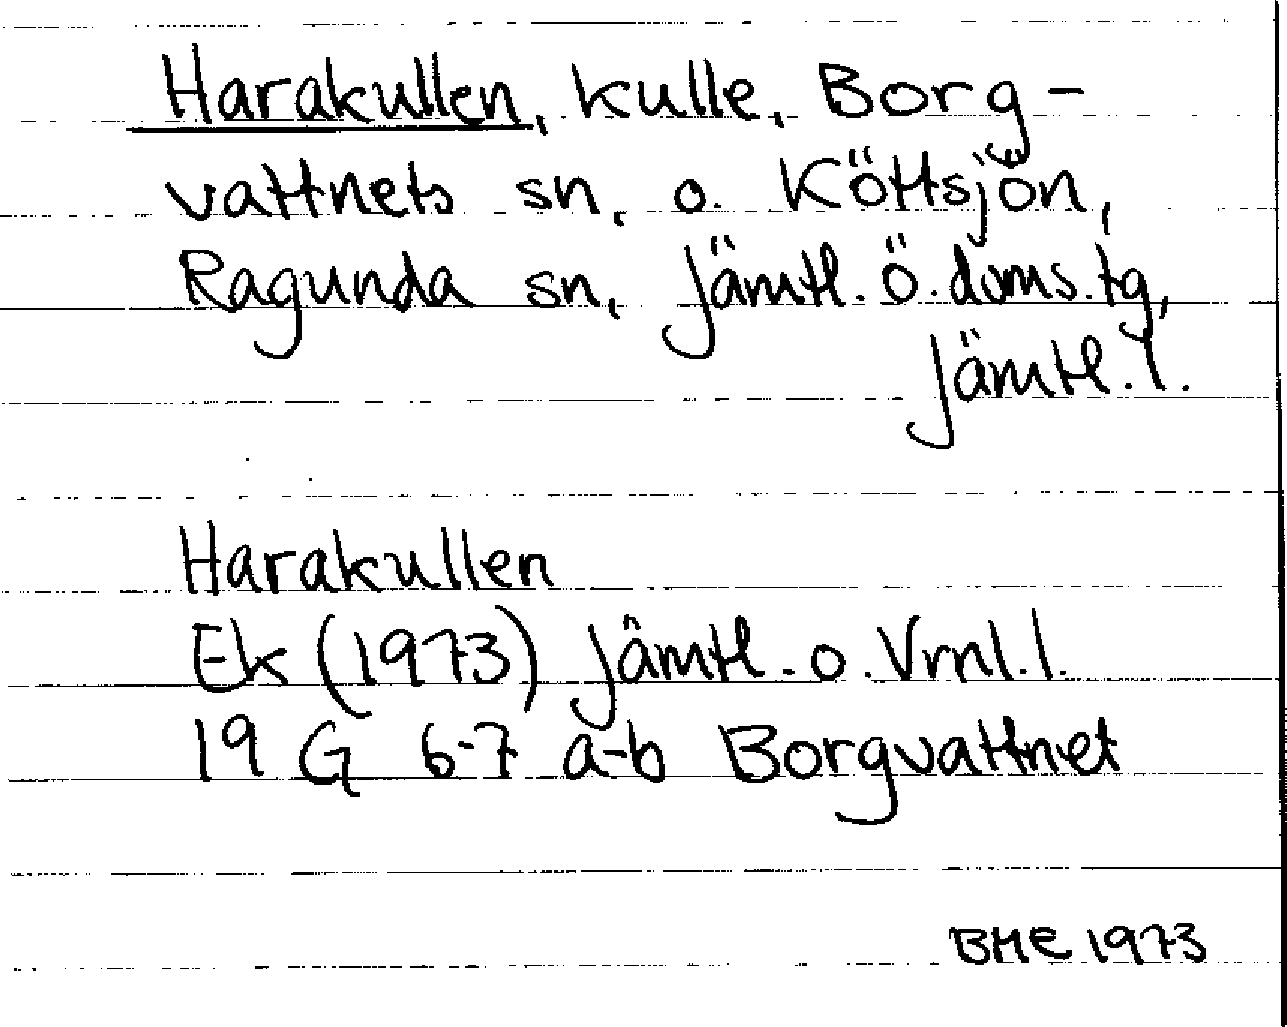 Harakullen, kulle, Borg-
vattnets sn, o. Köttsjön,
Ragunda sn, Jämtl. ö. doms. tg,
Jämtl. l.
Harakullen
Ek (1973) Jämtl. o. Vrnl. l.
19 G 6-7 a-b Borgvattnet
BHE 1973